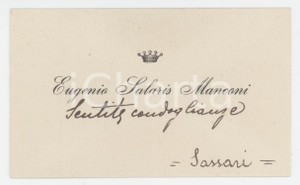 Eugenio Solaris Manconi
Sentite condoglianze
= Sassari =